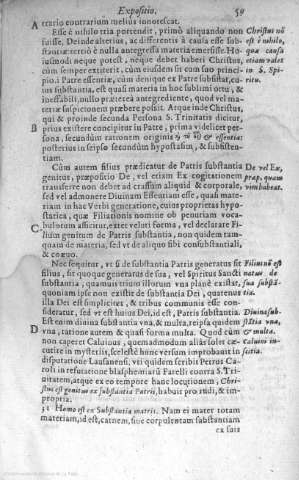 Expositio. 59
A trario contrarium melius innotescat.
Esse è nihilo tria portendit, primò aliquando non
fuisse. Deinde alterius, ac differentis à causa esse sub-
stantiæ: tertiò è nulla antegressa materia emersisse. Ho-
iusmodi neque potest, neque debet haberi Christus,
cùm semper extiterit, cùm eiusdem sit cum suo princi-
pio, i Patre essentiæ, cùm denique ex Patre subsistat, cu-
ius substantia, est quasi materia in hoc sublimi ortu, &
ineffabili, nulso præterea antegrediente, quod vel ma-
teriæ suspicionem præbere possit. Atque inde Christus,
qui & proinde secunda Persona S. Trinitatis dicitur,
B prius existere concipitur in Patre, prima videlicet per-
sona, secundùm rationem originis & essentiæ:
posterius in seipso secundùm hypostasim, & subsisten-
tiam.
Christus nõ
est è nihilo,
quæ causa
etiam valet
in S. Spi-
ritu.
Cùm autem filius prædicatur de Patris substantia
genitus, præpositio De, vel etiam Ex cogitationem
transferre non debet ad crassum aliquid & corporale,
sed vel admonere Diuinam Essentiam esse, quasi mate-
riam in hac Verbi generatione, cuius proprietas hypo-
statica, quæ Filiationis nomine ob penuriam voca-
C bulorum afficitur, exterVelut forma, vel declarare Fi-
lium genitum de Patris substantia, non quidem tam-
quam de materia, sed vt de aliquo sibi consubstantiali,
& coæuo.
De vel Ex,
præp. quam
vim habeat.
Nec sequitur, vt si de substantia Patris generatus sit
filius, sit quoque generatus de sua, vel Spiritus Sancti
substantia, quamuis trium illorum vna planè existat,
quoniam ipse non existit de substantia Dei, quatenus
illa Dei est simpliciter, & tribus communis esse con-
sideratur, sed vt est huius Dei, id est, Patris substantia.
Est enim diuina substantia vna, & multa, re ipsa quidem
D vna, ratione autem & quasi forma multa. Quod cùm
non caperet Caluinus, quemadmodum aliàs solet cæ-
cutire in mysteriis, scelestè hunc versum improbauit in
disputatione Lausanensi, vti quidem scribit Petrus Ca-
roli in refutatione blasphemiarũ Farelli contra S. Tri-
nitatem, atque ex eo tempore hanc locutionem, Chri-
stus est genitus ex substantia Patris, habuit pro rudi, & im-
propria.
Filius nõ est
natus de
sua substã-
tia.
Diuina sub-
stãtia vna,
& multa.
Caluini in-
scitia.
31 Homo est ex Substantia matris. Nam ei mater totam
materiam, id est, carnem, siue corpulentam substantiam
ex suis